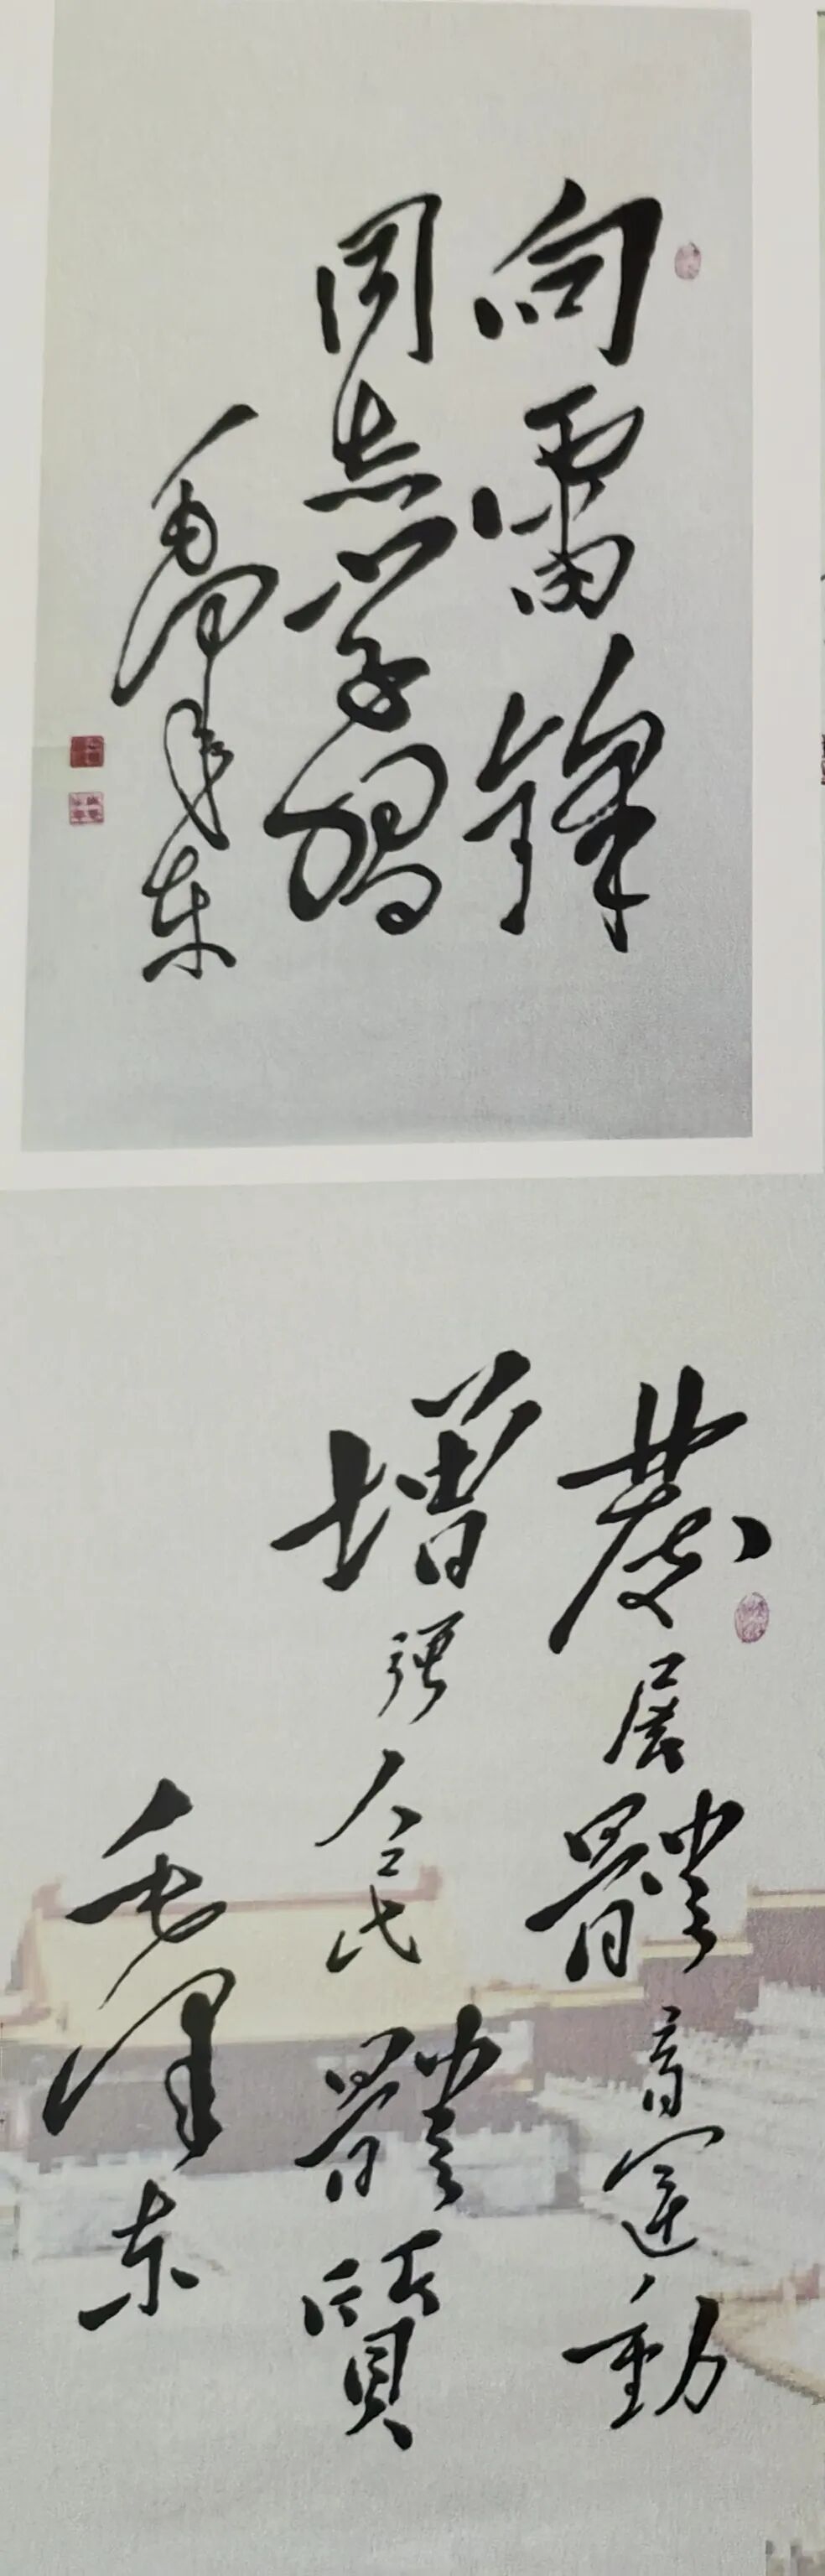 向雷锋
同志学习
毛泽东
發展體育运動
增强人民體質
毛泽东